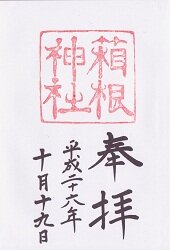 奉拝
箱根
神社
平成二十六年
十月十九日